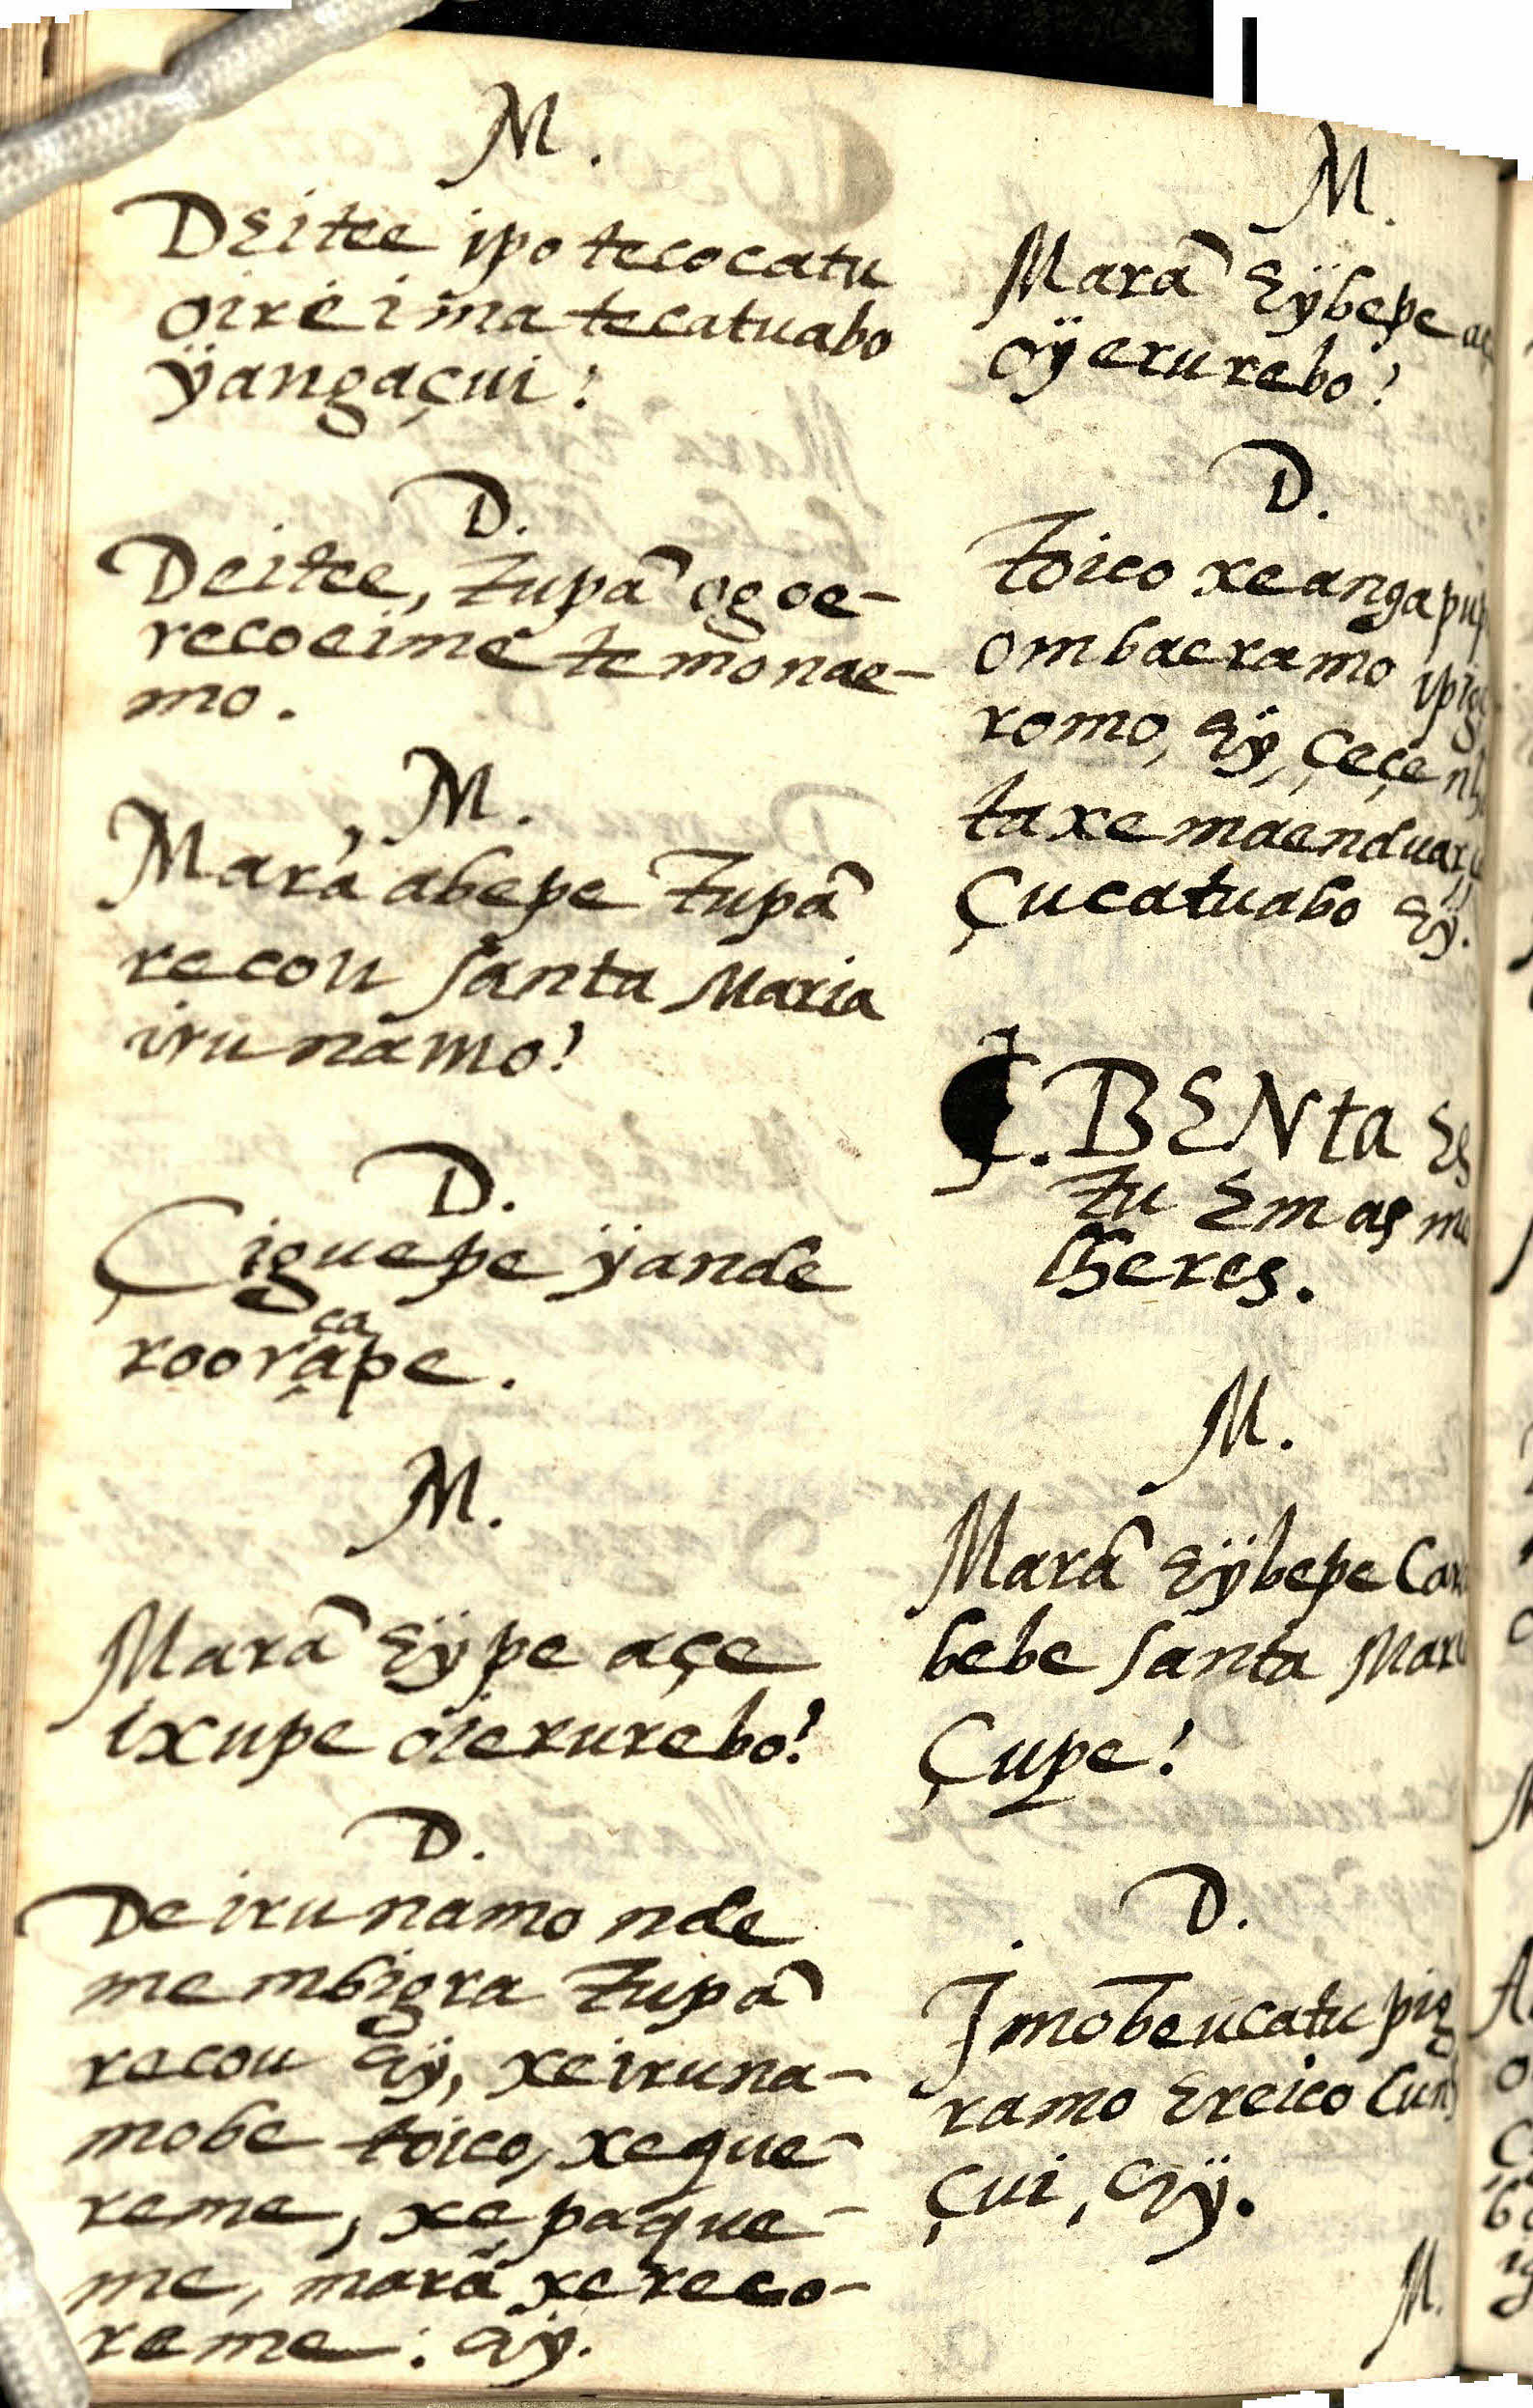 M.
DEitee ipo tecocatu
oireima tecatuabo
ÿangaçui?
D.
Deitee, Tupã ogoe-
recoeime temonae-
mo.
M.
Marã abepe Tupã
recou Santa Maria
irunamo?
D.
Çiguepe ÿande
roorycape.
M.
Marã Eÿpe açe
ixupe oierurebo?
D.
De irunamo nde
membigra Tupã
recou Eÿ, xeiruna-
mobe toico, xeque-
reme, xepaque-
me, marã xereco-
reme: Eÿ.
M.
Marã Eÿbepe
oÿerurebo?
D.
Toico xeanga
ombaeramo
romo, Eÿ, çeçe
taxe
Çucatuabo Eÿ.
₵. BENta
Tu Em as
lheres.
M.
Marã Eÿbepe
bebe Santa
Çupe?
D.
Imobeucatu
ramo Ereico
çui, Eÿ.
M.